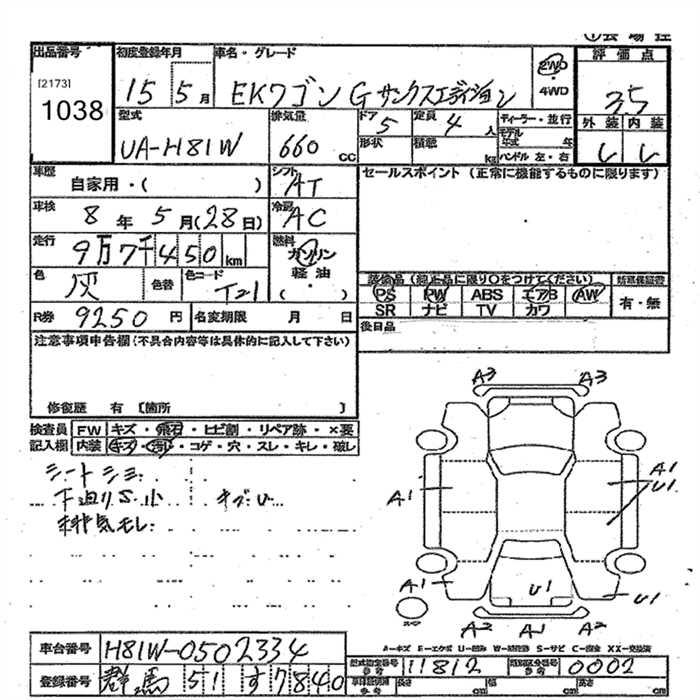 出品番号 初度登録年月 車名・グレード 評価点
[2173]
1038
15 5月 EKワゴン Gサンクスエディション 2WD 4WD 35
型式 排気量 ドア 5 定員 4人 ディーラー・並行 外装 内装
UA-H81W 660 cc 形状 積載 kg モデル年式 年 ハンドル 左・右
車歴 自家用・( ) シフト AT セールスポイント (正常に機能するものに限ります)
車検 8年 5月(28日) 冷房 AC
走行 9万7千450km 燃料 ガソリン 軽油 ・ ( )
色 灰 色替 色コード T21 装備品 (純正品に限り○をつけてください) 新車保証書
PS PW ABS エアB AW 有・無
SR ナビ TV カワ
R券 9250円 名変期限 月 日 後日品
注意事項申告欄(不具合内容等は具体的に記入して下さい)
修復歴 有 〔箇所 〕
検査員 FW キズ・飛石・ヒビ割・リペア跡・×要
記入欄 内装 キズ・汚れ・コゲ・穴・スレ・キレ・破し
シートシミ
下廻りS.小 キズU
排気モレ
A3 A3
A1 A1
U1
A1 U1 U1
A2 A1 A2
A=キズ E=エクボ U=凹み W=補修跡 S=サビ C=腐食 XX=交換済
車台番号 H81W-0502334
登録番号 群馬 51 す7840 型式指定番号 11812 類別区分番号 0002
長さ cm 幅 cm 高さ cm